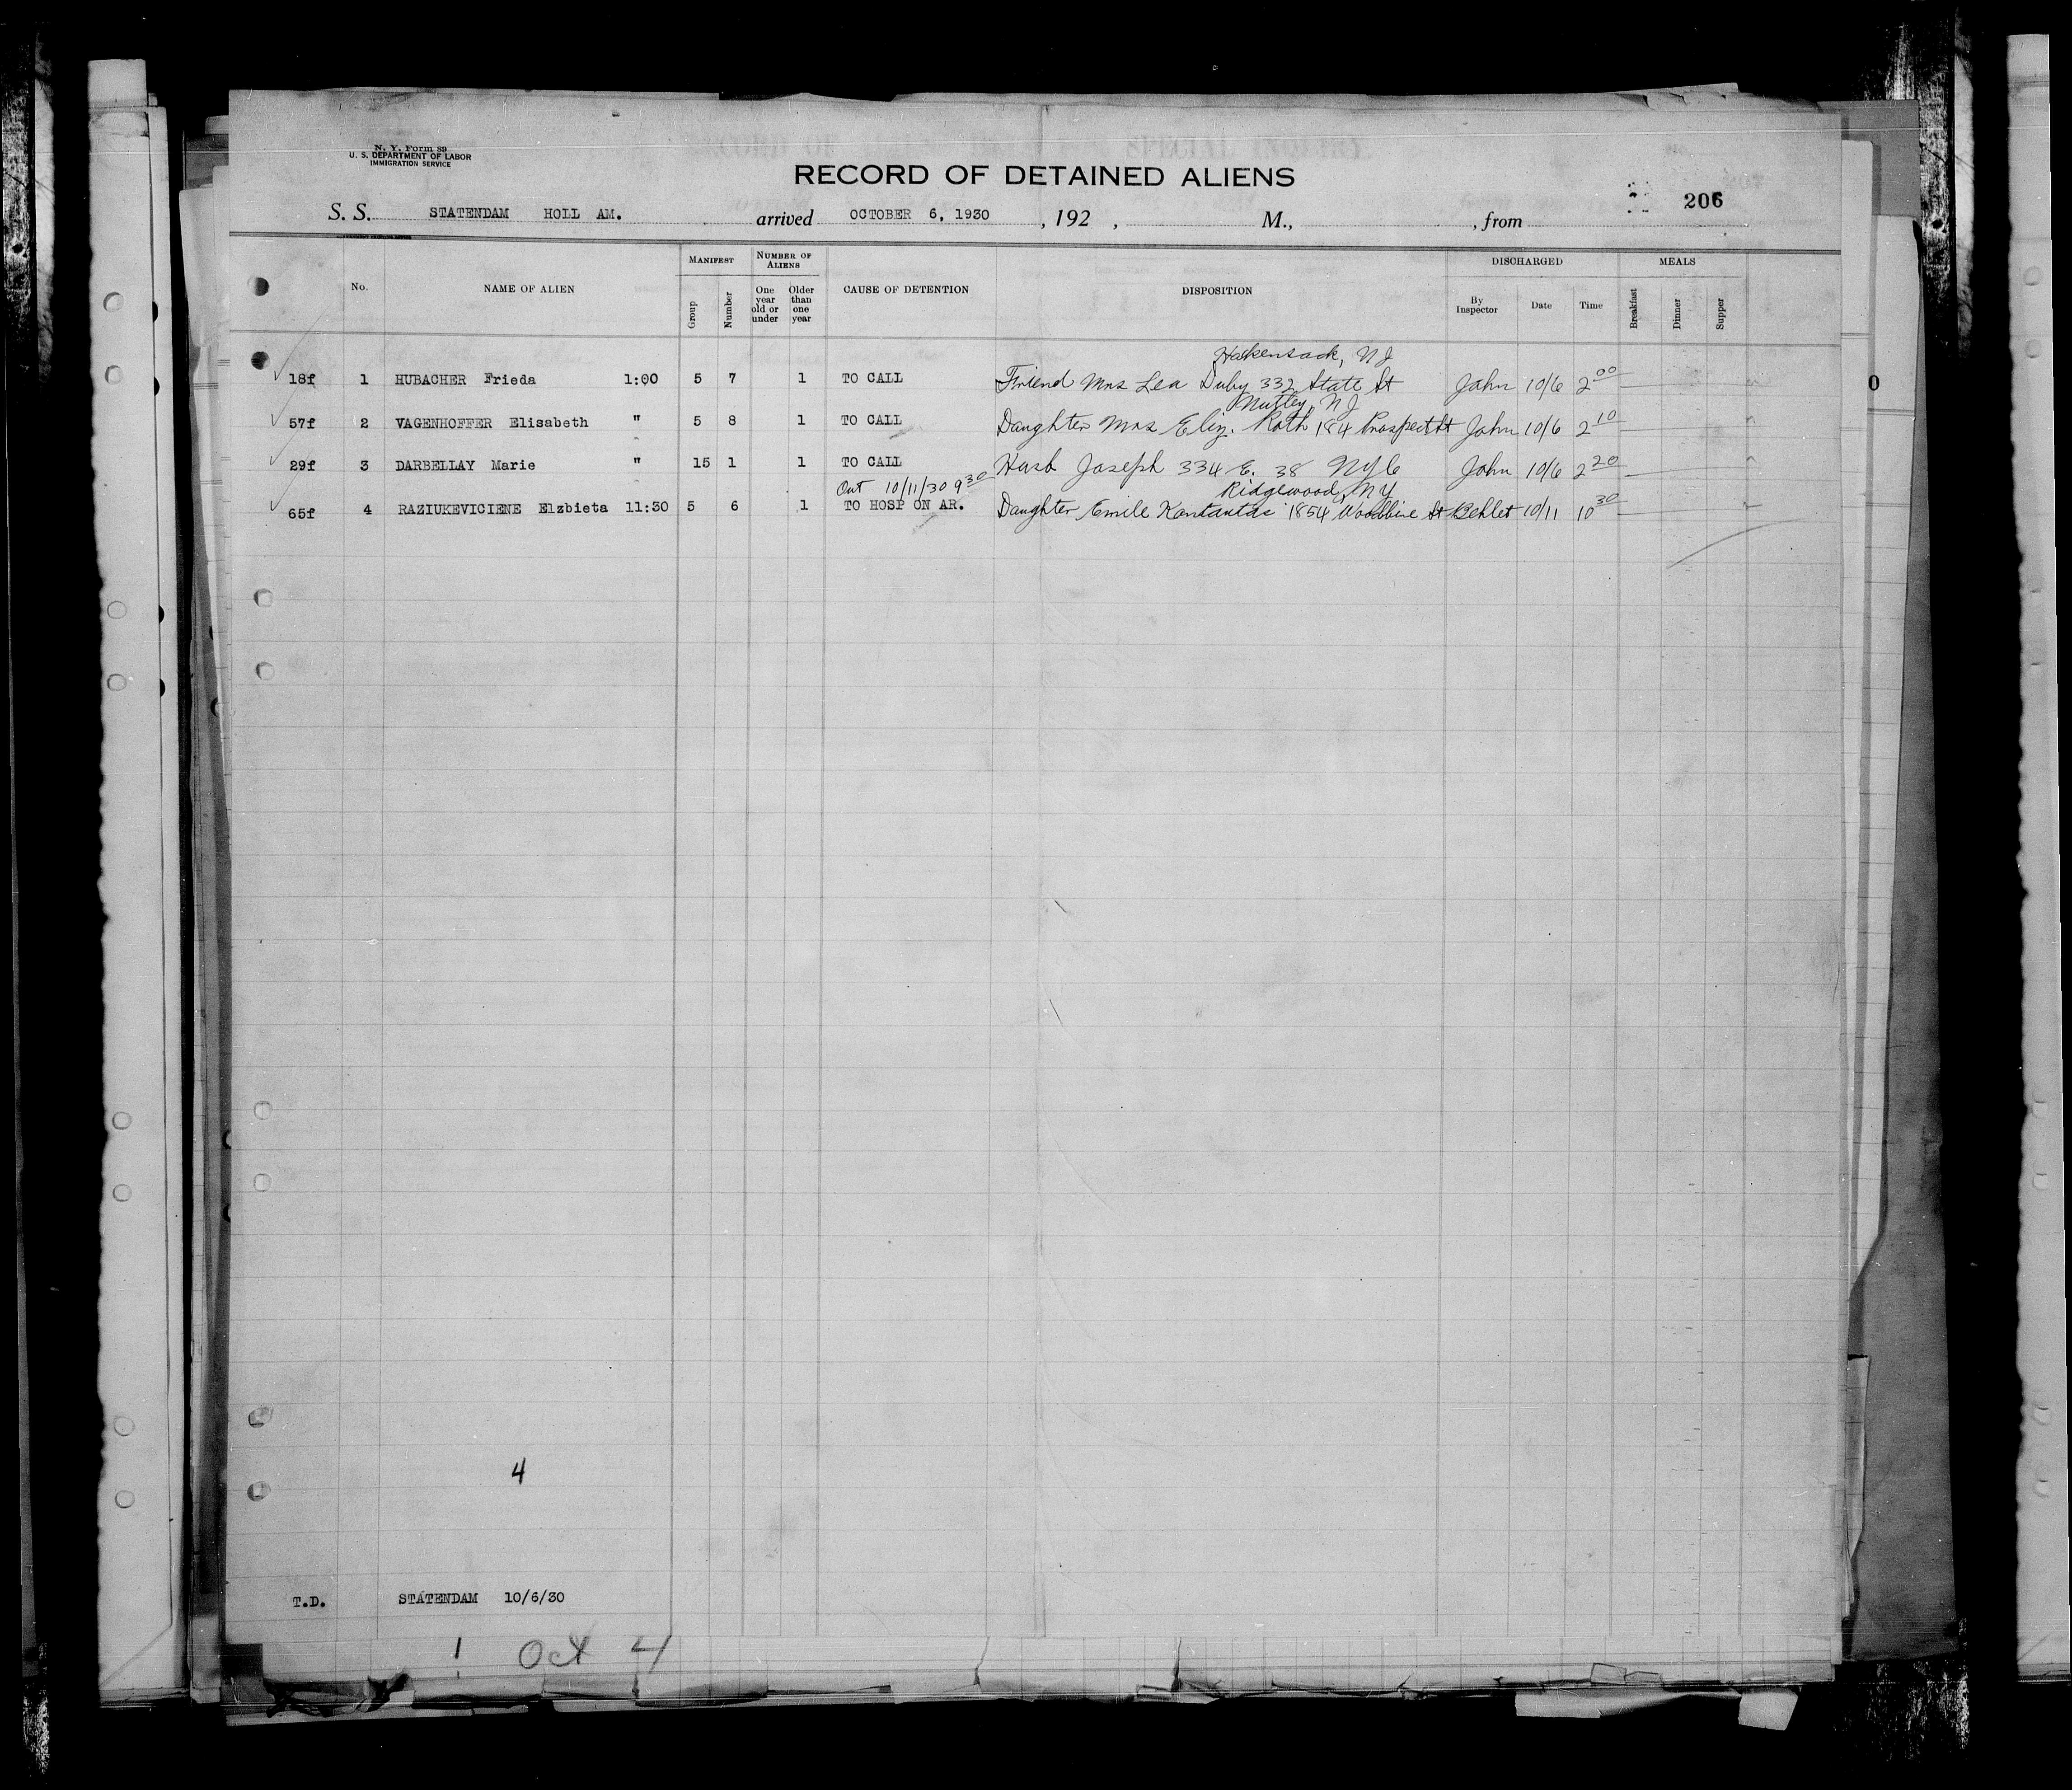 N. Y. Form 89
U. S. DEPARTMENT OF LABOR
IMMIGRATION SERVICE
RECORD OF DETAINED ALIENS
206
S. S. STATENDAM HOLL AM. arrived OCTOBER 6, 1930, 192 , M., , from
No. NAME OF ALIEN MANIFEST Group Number NUMBER OF ALIENS One year old or under Older than one year CAUSE OF DETENTION DISPOSITION DISCHARGED By Inspector Date Time MEALS Breakfast Dinner Supper
Hackensack, NJ
18f 1 HUBACHER Frieda 1:00 5 7 1 TO CALL Friend Mrs Lea Duby 332 State St John 10/6 2 00
Nutley, NJ
57f 2 VAGENHOFFER Elisabeth " 5 8 1 TO CALL Daughter Mrs Eliz. Roth 184 Prospect St John 10/6 2 10
29f 3 DARBELLAY Marie " 15 1 1 TO CALL Husb Joseph 334 E. 38 NYC John 10/6 2 20
Out 10/11/30 9 30 Ridgewood, NY
65f 4 RAZIUKEVICIENE Elzbieta 11:30 5 6 1 TO HOSP ON AR. Daughter Emile 1854 Woodbine St 10/11 10 30
4
T.D. STATENDAM 10/6/30
1 Oct 4
0